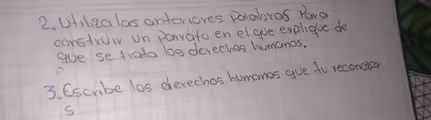 2. Utiliza las anteriores palabras Para
construir un parrafo en el que explique de
que se trata los derechos humanos.
3. Escribe los derechos humanos que tu reconoces
s